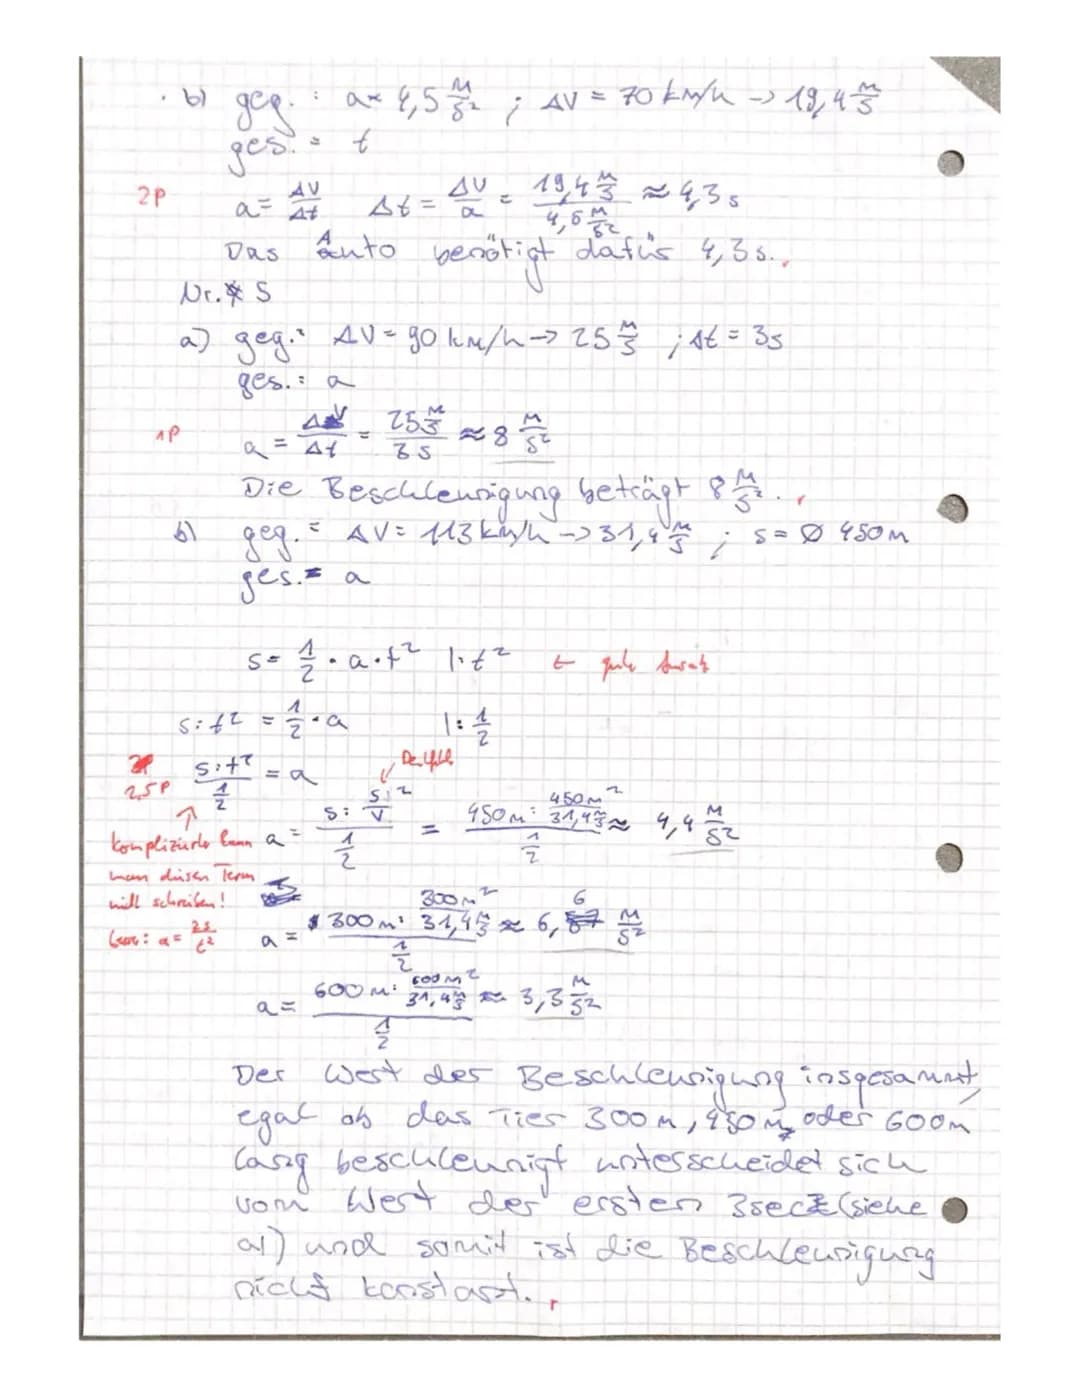 b) geg.: a= 4,5 m/s² ; ΔV = 70 km/h -> 19,4 m/s
ges. = t
2P
a= ΔV/Δt Δt = ΔV/a = 19,4 m/s / 4,5 m/s² ≈ 4,3 s
Das Auto benötigt dafür 4,3 s.
Nr. 5
a) geg.: ΔV = 90 km/h -> 25 m/s ; Δt = 3s
ges.: a
1P
a = ΔV/Δt = 25 m/s / 3s ≈ 8 m/s²
Die Beschleunigung beträgt 8 m/s².
b) geg. = ΔV = 113 km/h -> 31,4 m/s ; s = Ø 450 m
ges. = a
s = 1/2 · a · t² |: t² ← gute Ansatz
s : t² = 1/2 · a |: 1/2
2,5P
s : t² / 1/2 = a
komplizierter kann man diesen Term nicht schreiben!
a = s : s/v ² / 1/2 = 450 m : 450 m / 31,4 m/s ² / 1/2 ≈ 4,4 m/s²
a = 2s/t²
a = 300 m : 300 m / 31,4 m/s ² / 1/2 ≈ 6,6 m/s²
a = 600 m : 600 m / 31,4 m/s ² / 1/2 ≈ 3,3 m/s²
Der Wert der Beschleunigung insgesammt,
egal ob das Tier 300 m, 450 m, oder 600 m
lang beschleunigt unterscheidet sich
vom Wert der ersten 3 sec (siehe
a)) und somit ist die Beschleunigung
nicht konstant.